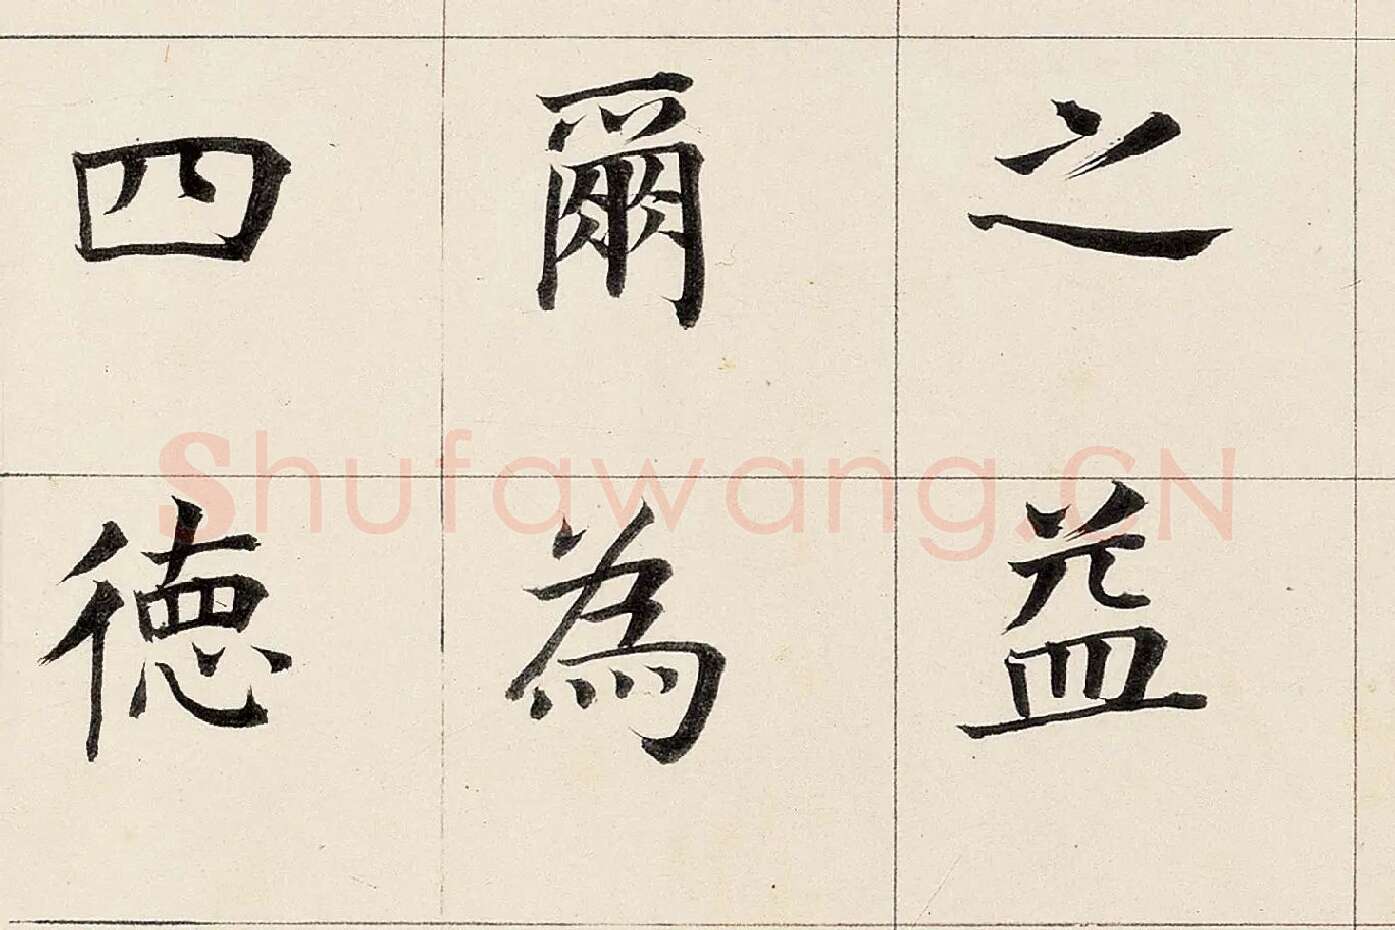 之益
爾為
四德
Shufawang.CN